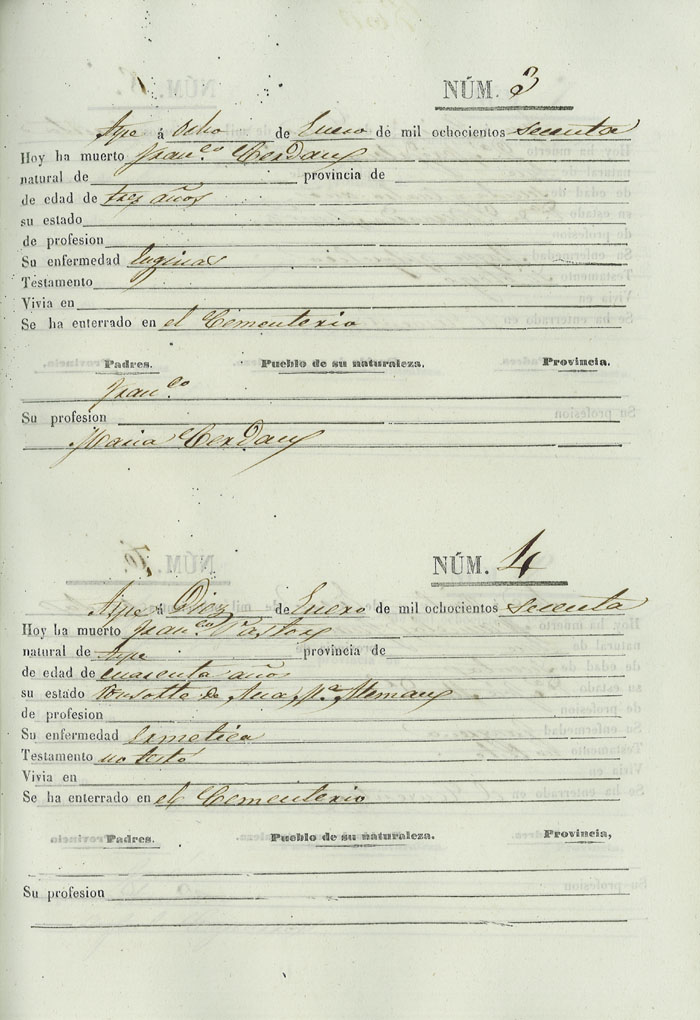 NÚM. 3
Aspe á Ocho de Enero de mil ochocientos sesenta
Hoy ha muerto Fran.co Cerdan
natural de provincia de
de edad de tres años
su estado
de profesion
Su enfermedad Anginas
Testamento
Vivia en
Se ha enterrado en el Cementerio
Padres. Pueblo de su naturaleza. Provincia.
Fran.co
Su profesion
Maria Cerdan
NÚM. 4
Aspe á Diez de Enero de mil ochocientos sesenta
Hoy ha muerto Fran.co Pastor
natural de Aspe provincia de
de edad de cuarenta años
su estado consorte de Ana M.a Aleman
de profesion
Su enfermedad
Testamento no testó
Vivia en
Se ha enterrado en el Cementerio
Padres. Pueblo de su naturaleza. Provincia,
Su profesion